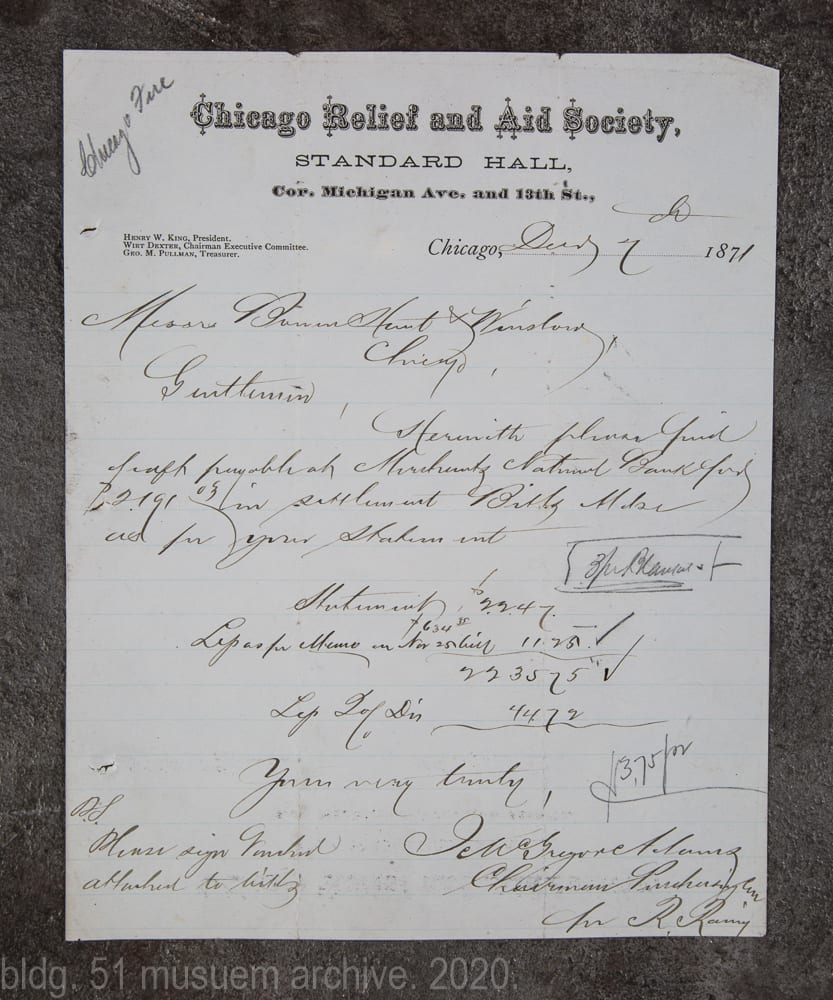 Chicago Fire
Chicago Relief and Aid Society,
STANDARD HALL,
Cor. Michigan Ave. and 13th St.,
HENRY W. KING, President.
WIRT DEXTER, Chairman Executive Committee.
GEO. M. PULLMAN, Treasurer.
Chicago, 7 1871
Messrs Bowen Hunt & Winslow,
Chicago,
Gentlemen,
Herewith please find
draft payable at Merchants National Bank for
$2191 03 in settlement Bills Mdse
as per your Statement
Statement, $2247.
Less as per Memo on Nov 25 bill 11.25
2235 75
Less 2% Dis 44 72
Yours very truly,
$3,75 for
P.S.
Please sign Voucher
attached to bills
J McGregor Adams
Chairman Purchasing Com
per R.
bldg. 51 musuem archive. 2020.